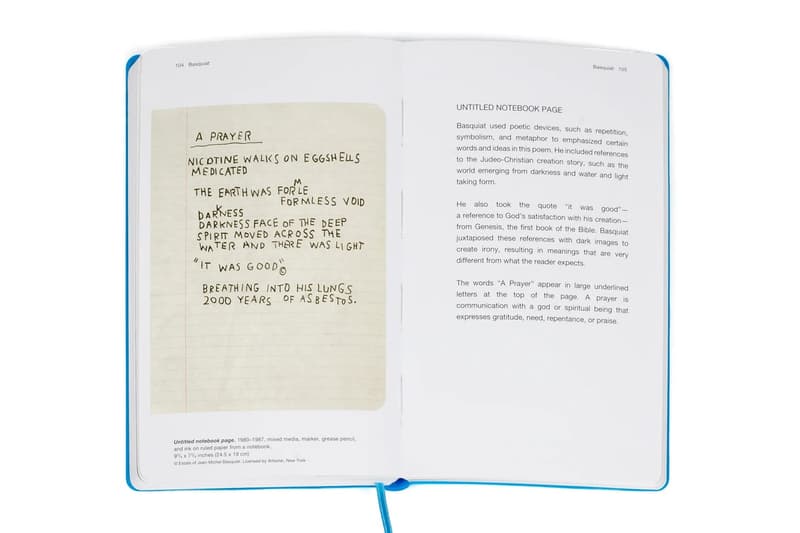 104 Basquiat
A PRAYER
NICOTINE WALKS ON EGGSHELLS
MEDICATED
THE EARTH WAS FORMLE
FORMLESS VOID
DARKNESS
DARKNESS FACE OF THE DEEP
SPIRIT MOVED ACROSS THE
WATER AND THERE WAS LIGHT
"IT WAS GOOD"©
BREATHING INTO HIS LUNGS
2000 YEARS OF ASBESTOS.
Untitled notebook page, 1980–1987, mixed media, marker, grease pencil,
and ink on ruled paper from a notebook,
inches (24.5 x 19 cm)
© Estate of Jean-Michel Basquiat. Licensed by Artestar, New York
Basquiat 105
UNTITLED NOTEBOOK PAGE
Basquiat used poetic devices, such as repetition,
symbolism, and metaphor to emphasized certain
words and ideas in this poem. He included references
to the Judeo-Christian creation story, such as the
world emerging from darkness and water and light
taking form.
He also took the quote “it was good”—
a reference to God's satisfaction with his creation—
from Genesis, the first book of the Bible. Basquiat
juxtaposed these references with dark images to
create irony, resulting in meanings that are very
different from what the reader expects.
The words “A Prayer” appear in large underlined
letters at the top of the page. A prayer is
communication with a god or spiritual being that
expresses gratitude, need, repentance, or praise.